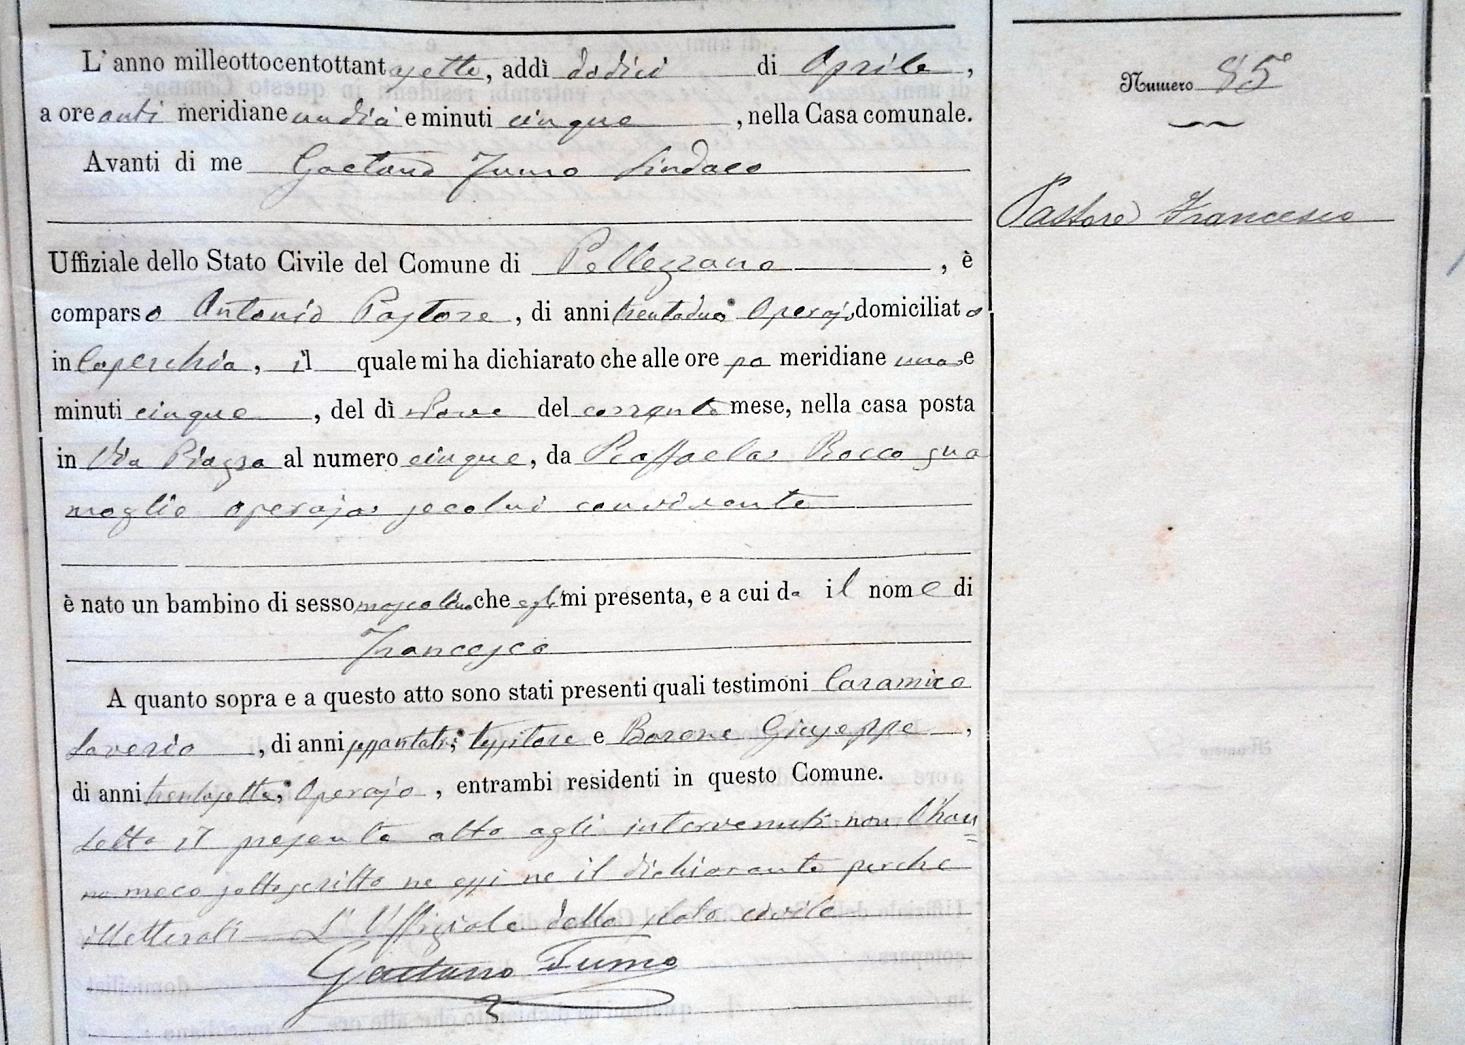 L'anno milleottocentottantasette, addì dodici di Aprile,
a ore anti meridiane undici e minuti cinque, nella Casa comunale.
Avanti di me Gaetano Fumo Sindaco
Uffiziale dello Stato Civile del Comune di Pellezzano, è
comparso Antonio Pastore, di anni trentadue Operajo domiciliato
in Coperchia, il quale mi ha dichiarato che alle ore po meridiane una e
minuti cinque, del dì nove del corrente mese, nella casa posta
in Via Piazza al numero cinque, da Raffaela Rocco sua
moglie operaja secolui convivente
è nato un bambino di sesso mascolino che egli mi presenta, e a cui da il nome di
Francesco
A quanto sopra e a questo atto sono stati presenti quali testimoni Caramico
Saverio, di anni tessitore e Barone Giuseppe,
di anni trentasette, Operajo, entrambi residenti in questo Comune.
Letto il presente atto agli intervenuti non l'han=
no meco sottoscritto ne essi ne il dichiarante perche
illetterati L'Uffiziale dello stato civile
Gaetano Fumo
Numero 85
Pastore Francesco